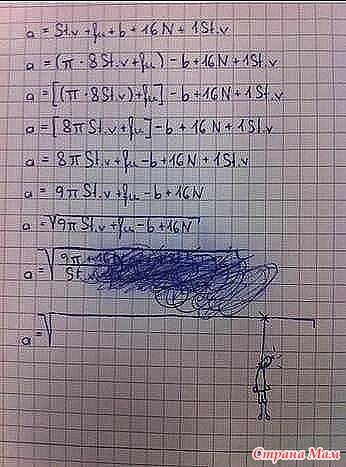 a = St.v + fu + b + 16N + 1St.v
a = (π · 8St.v + fu) - b + 16N + 1St.v
a = [(π · 8St.v) + fu] - b + 16N + 1St.v
a = [8πSt.v + fu] - b + 16N + 1St.v
a = 8πSt.v + fu - b + 16N + 1St.v
a = 9πSt.v + fu - b + 16N
a = √9πSt.v + fu - b + 16N
a = √9π + 16N
St.v
a = √
Страна Мам